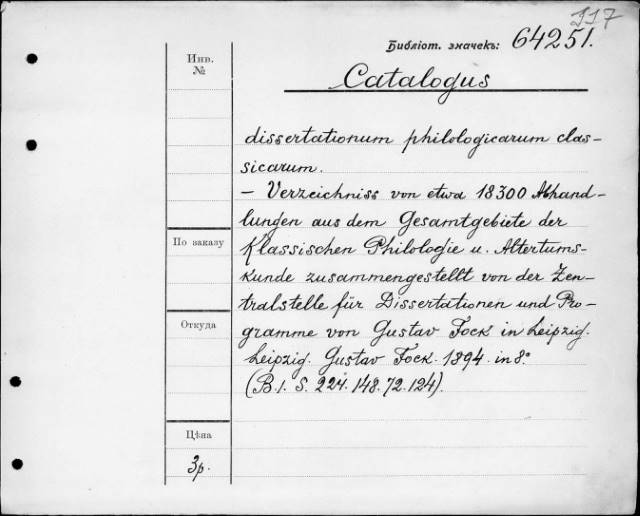 117
Библіот. значекъ: 64251.
Инв.
№
Catalogus
dissertationum philologicarum clas-
sicarum.
— Verzeichniss von etwa 18300 Abhand-
lungen aus dem Gesamtgebiete der
Klassischen Philologie u. Altertums-
kunde zusammengestellt von der Zen-
tralstelle für Dissertationen und Pro-
gramme von Gustav Fock in Leipzig.
Leipzig. Gustav Fock. 1894. in 8°
(B. 1. S. 224. 148. 72. 124).
По заказу
Откуда
Цѣна
3р.